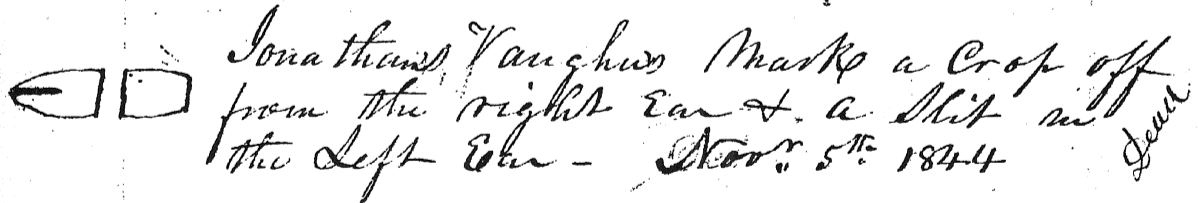 Jonathans Vaughns Mark a Crop off
from the right Ear & a Slit in
the Left Ear – Novr. 5th 1844
Dead